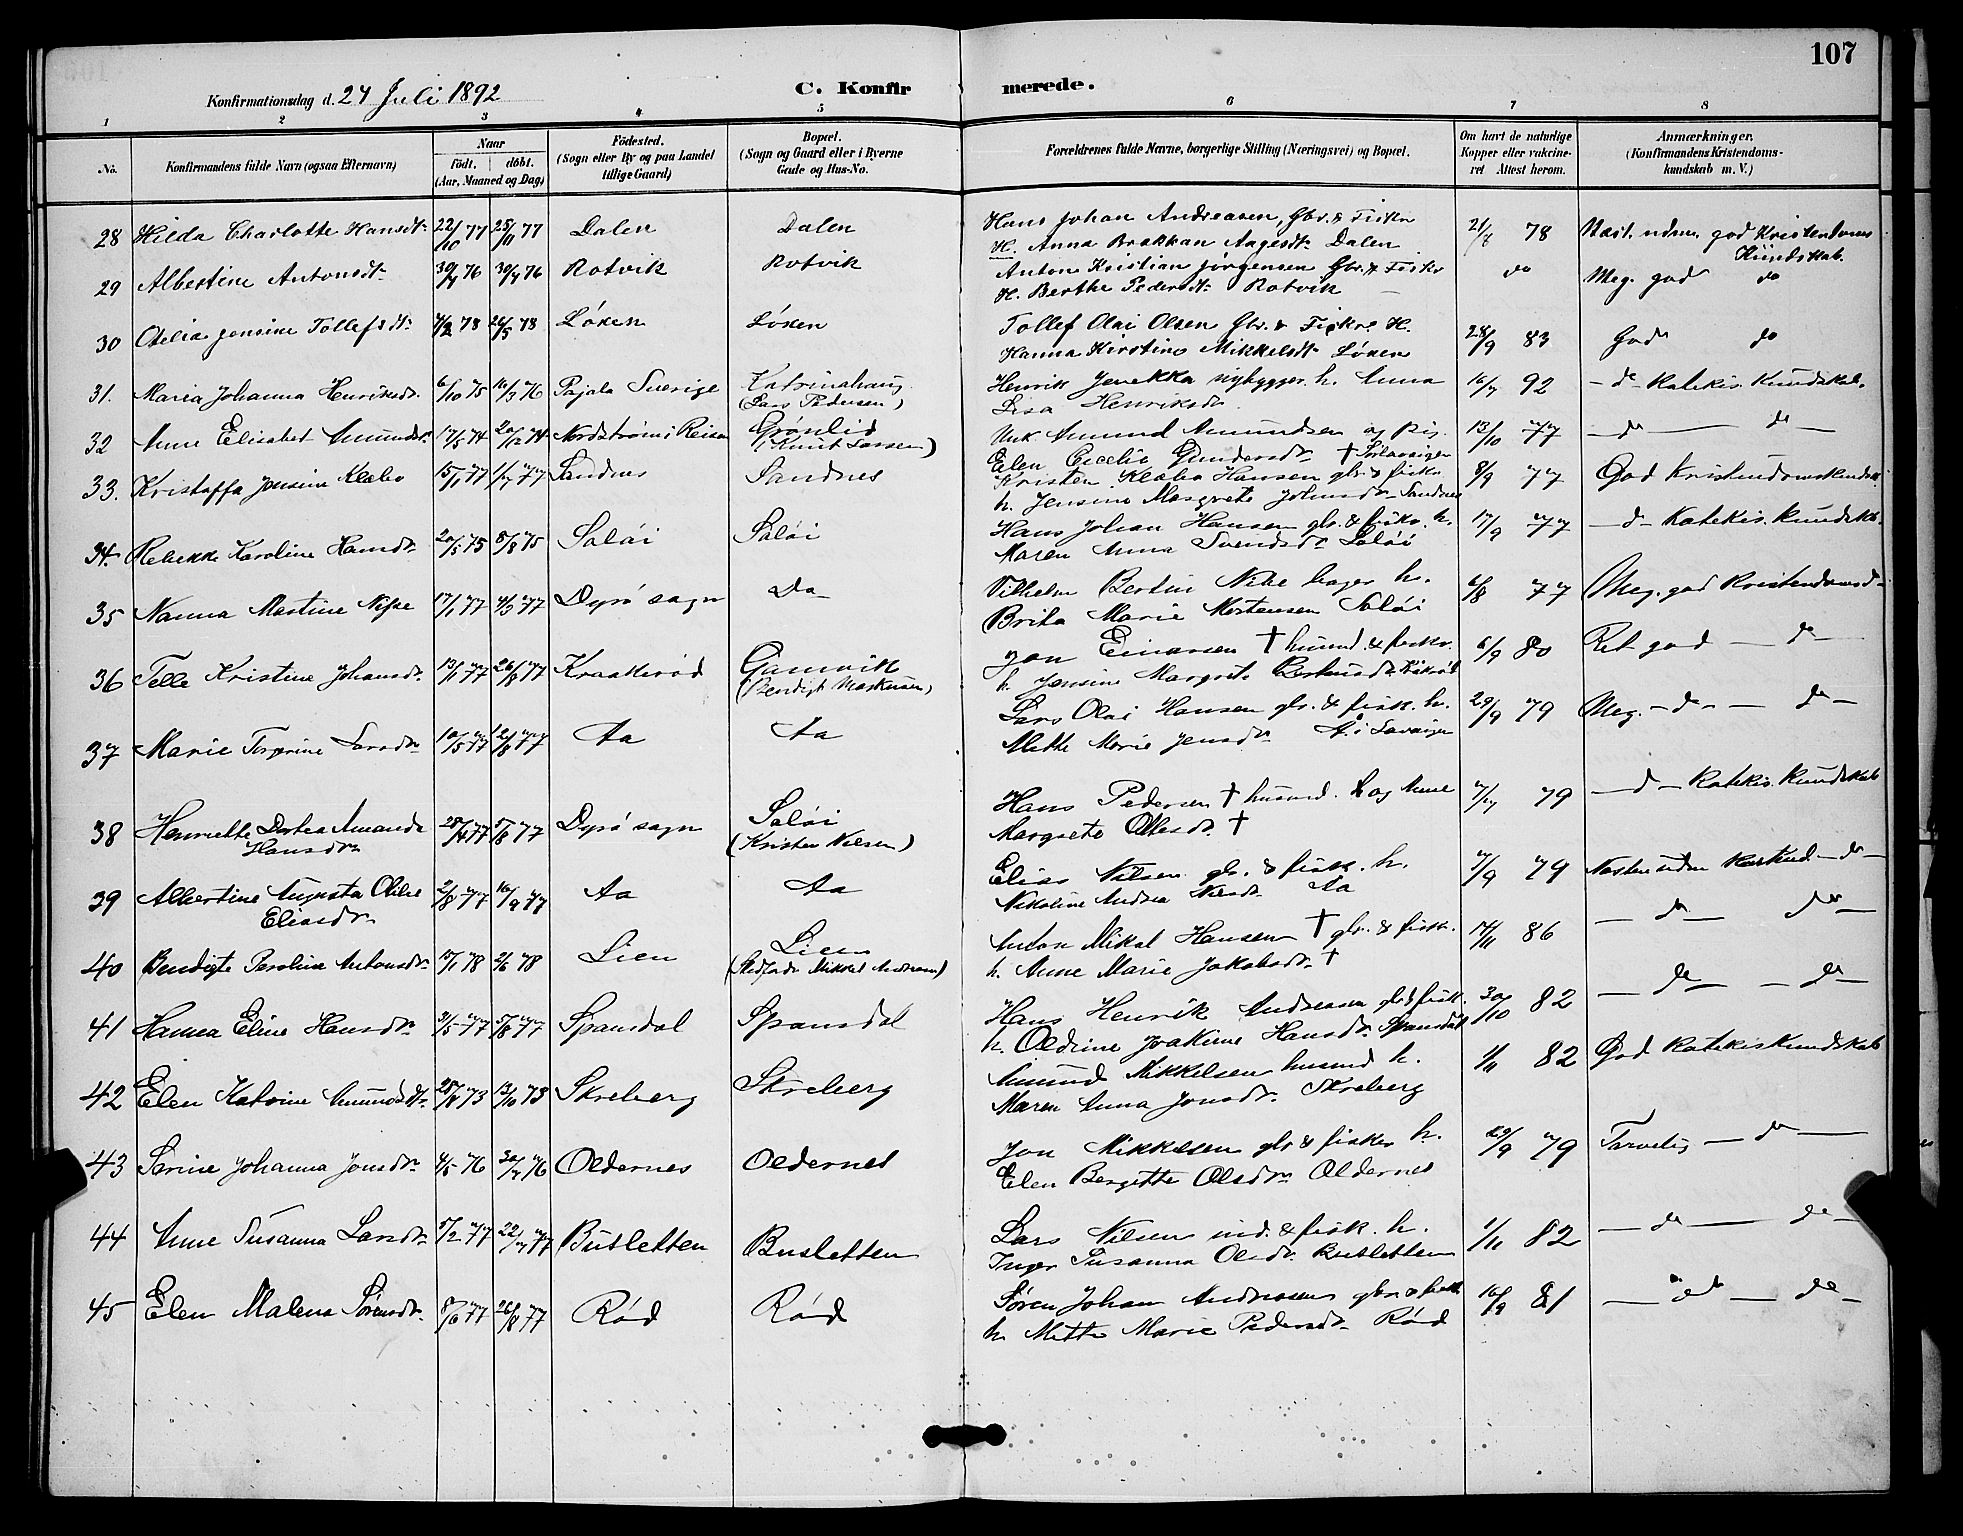 107
Konfirmationsdag d. 24 Juli 1892 C. Konfirmerede.
1 2 3 4 5 6 7 8
No. Konfirmandens fulde Navn (ogsaa Efternavn) Naar født, døbt. (Aar, Maaned og Dag) Fødested. (Sogn eller By og paa Landet tillige Gaard) Bopæl. (Sogn og Gaard eller i Byerne Gade og Hus-No. Forældrenes fulde Navne, borgerlige Stilling (Næringsvei) og Bopæl. Om havt de naturlige Kopper eller vakcineret Attest herom. Anmærkninger. (Konfirmandens Kristendomskundskab m. V.)
28 Hilda Charlotte Hansdtr 22/10 77 25/11 77 Dalen Dalen Hans Johan Andreasen, Gbr. & Fisker 21/8 78 Næst. udm. god Kristendoms
H. Anna Brakkan Aagesdtr Dalen Kundskab.
29 Albertine Antonsdtr 30/4 76 30/7 76 Rotvik Rotvik Anton Kristian Jørgensen Gbr. & Fisker do Meg. god do
H. Berthe Pedersdtr Rotvik
30 Otelia Jensine Tollefsdtr 4/2 78 26/5 78 Løxen Løxen Tollef Olai Olsen Gbr. & Fisker H. 28/9 83 God do
Hanna Kirstine Mikkelsdtr Løxen
31. Maria Johanna Henriksdr. 6/10 75 10/3 76 Pajala Sverige Katrinahaug Henrik Jenekka nybygger h. Anna 16/7 92 - do Katekis. Kundskab.
(Lars Pedersen) Lisa Henriksdr.
32 Anne Elisabet Amundsdr. 17/5 74 20/12 74 Nordstrøm i Reisen Grønlid Unk. Amund Amundsen og pig. 13/10 77 - do - do -
(Knut Larsen) Elen Cecelie Gundersdr. †
33. Kristoffa Jensine Klæbo 15/1 77 1/7 77 Sandnes Sandnes Kristen Klæbo Hansen gbr. & fisker 8/9 77 God Kristendomskundsk.
h. Jensine Margrete Johnsdr. Sandnes
34. Rebekka Karoline Hansdr. 20/5 75 8/8 75 Saløi Saløi Hans Johan Hansen gbr. & fisker. h. 17/9 77 - do - Katekis. kundskb.
Maren Anna Svendsdr. Saløi
35 Nanna Martine Nipe 17/1 77 4/3 77 Dyrø sogn Do Vilhelm Bertin Nipe bager h. 6/8 77 Meg. god Kristendomsk.
Brita Marie Mortensen Saløi
36 Telle Kristine Johansdr. 13/1 77 26/8 77 Kraakerød Gamvik Jon Einarsen † husmd. & fisker. 6/9 80 Ret god - do -
(Bendigt Markusen) h. Jensine Margrete
37 Marie Torgrine Larsdr. 10/5 77 12/8 77 Aa Aa Lars Olai Hansen gbr. & fisk. h. 29/9 79 Meg. - do - - do -
Mette Marie Jensdr. A. i Lavangen
38 Henriette Dortea Amanda 28/4 77 5/8 77 Dyrø sogn Saløi Hans Pedersen † husmd. & og Anne 7/7 79 - do - Katekis. Kundskab
Hansdr. (Kristen Nilsen) Margrete Olesdr. †
39 Albertine Augusta Otilie 2/8 77 16/9 77 Aa Aa Elias Nilsen gbr. & fisk. h. 7/9 79 Næsten uden Kristend. - do -
Eliasdr. Nikoline Andrea Nilsdr. Aa
40 Bendigte Peroline Antonsdr. 15/1 78 2/6 78 Lien Lien Anton Mikal Hansen † gbr. & fisk. 14/11 86 - do - do -
(Stedfader Mikkel Andreasen) h. Anne Marie Jakobsdr. †
41 Hanna Eline Hansdr. 31/5 77 5/8 77 Spansdal Spansdal Hans Henrik Andreasen gbr & fisk. 30/10 82 - do - - do -
h. Oldrine Joakime Hansdr. Spansdal
42 Elen Katrine Amundsdtr. 28/8 73 13/10 73 Skreberg Skreberg Amund Mikkelsen husmd h. 1/11 82 God Katekiskundskab
Maren Anna Jonsdr. Skreberg
43 Serine Johanna Jonsdr. 4/5 76 30/7 76 Oldernes Oldernes Jon Mikkelsen gbr & fisker h. 29/9 79 Tarvelig - do -
Elen Bergitte Olsdr. Oldernes
44 Anne Susanna Larsdr. 5/2 77 22/7 77 Busletten Busletten Lars Nilsen ind. & fisk. h. 1/11 82 - do - do -
Inger Susanna Olsdr. Busletten
45 Elen Malena Sørensdr. 8/6 77 26/8 77 Rød Rød Søren Johan Andreasen gbr & fisk 16/9 81 - do - do -
h. Mette Marie Pedersdr. Rød